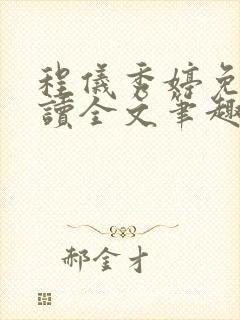 程儀秀婷免
讀全文筆趣
郝金才